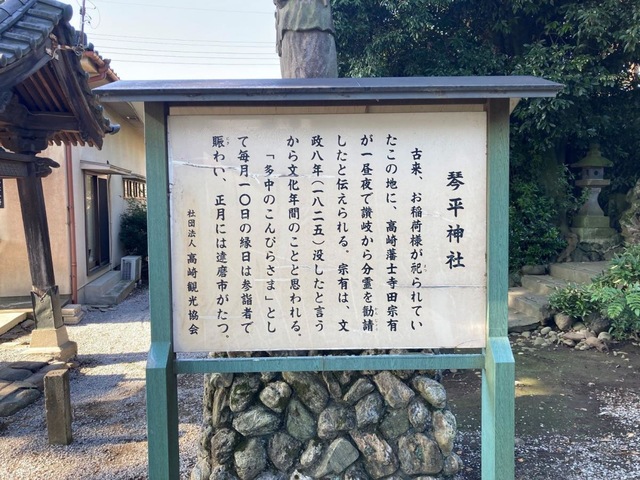 琴平神社
古来、お稲荷様が祀られてい
たこの地に、高崎藩士寺田宗有
が一昼夜で讃岐から分霊を勧請
したと伝えられる。宗有は、文
政八年(一八二五)没したと言う
から文化年間のことと思われる。
「多中のこんぴらさま」とし
て毎月一〇日の縁日は参詣者で
賑わい、正月には達磨市がたつ。
社団法人 高崎観光協会